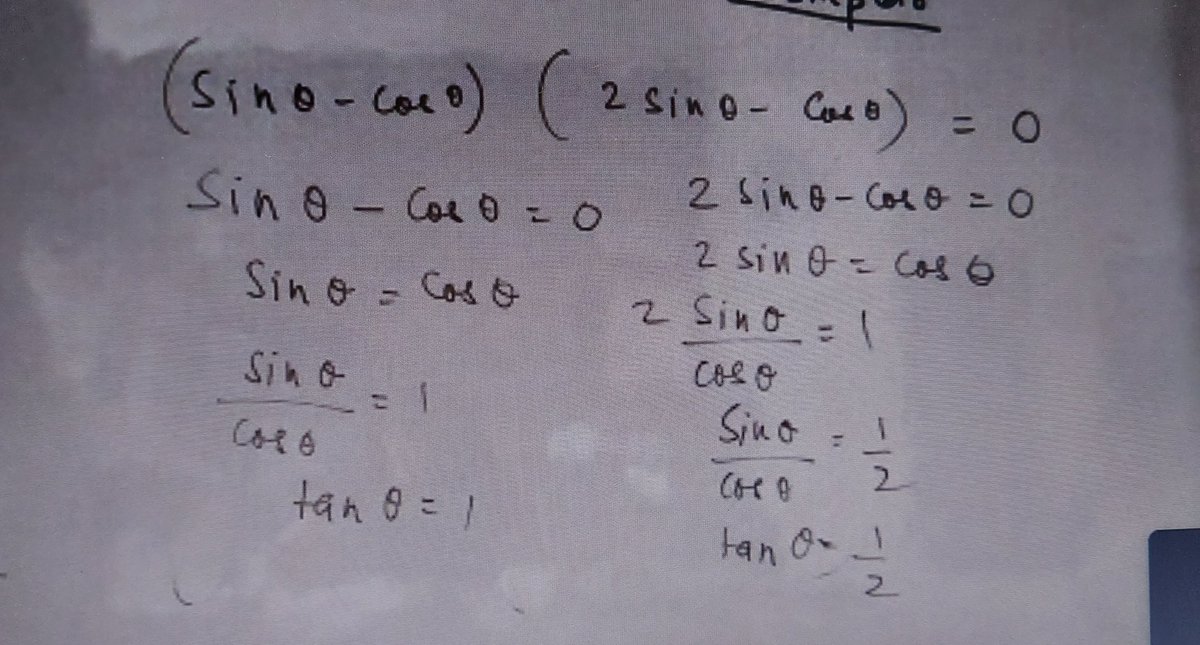 (Sinθ - cosθ) (2 sinθ - Cosθ) = 0
Sin θ - Cos θ = 0
2 sinθ - Cosθ = 0
Sin θ = Cos θ
2 sin θ = Cos θ
2 Sin θ / cos θ = 1
Sin θ / Cos θ = 1
Sin θ / Cos θ = 1/2
tan θ = 1
tan θ = 1/2